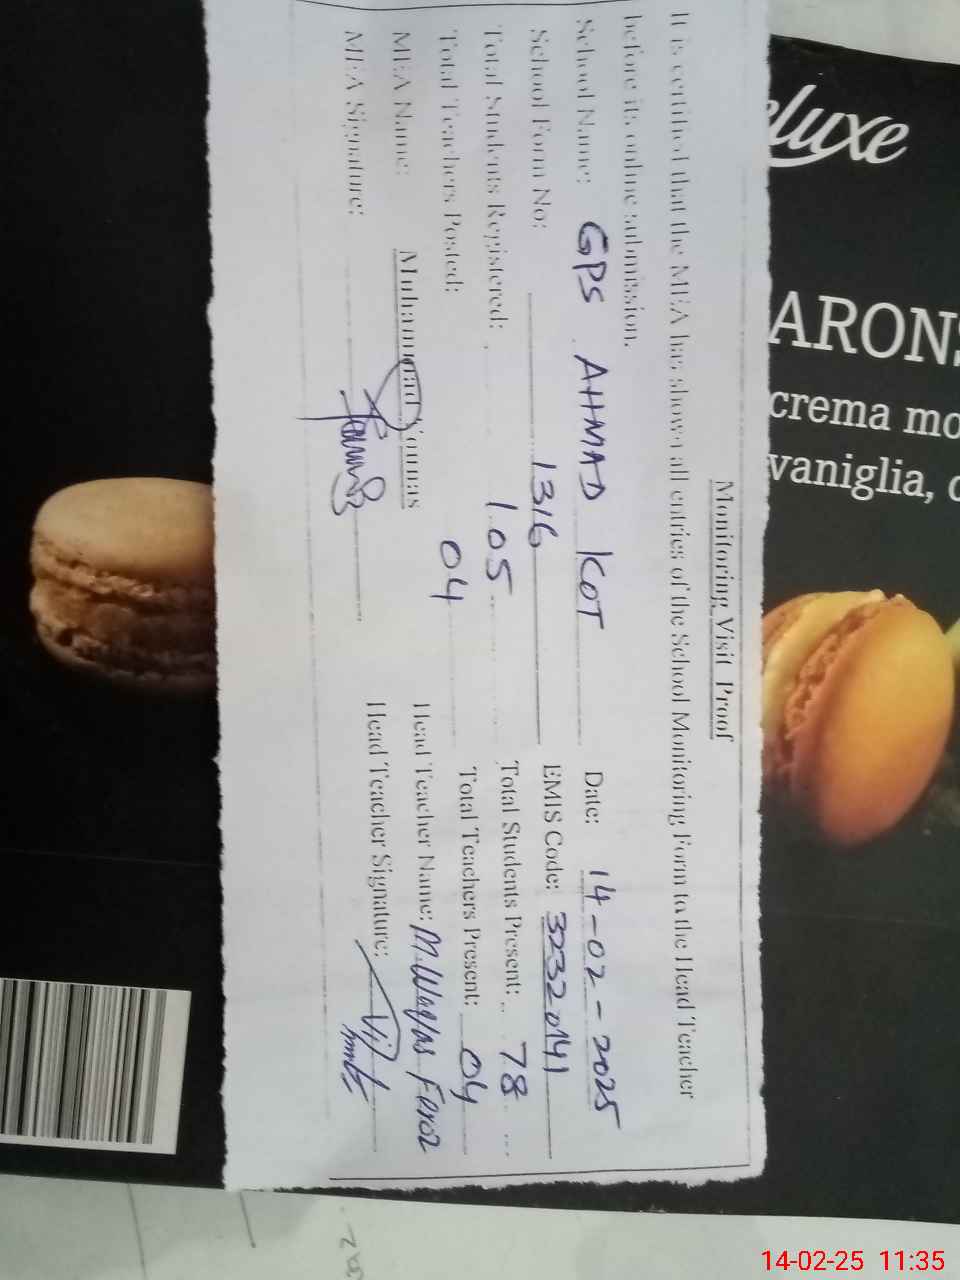 Monitoring Visit Proof
It is certified that the MEA has shown all entries of the School Monitoring Form to the Head Teacher
before its online submission.
School Name: GPS AHMAD KOT Date: 14-02-2025
School Form No: 1316 EMIS Code: 32320141
Total Students Registered: 105 Total Students Present: 78
Total Teachers Posted: 04 Total Teachers Present: 04
MEA Name: Muhammad Younas Head Teacher Name: M. Waqas Feroz
MEA Signature: Head Teacher Signature:
eluxe
ARONS
crema mo
vaniglia,
14-02-25 11:35